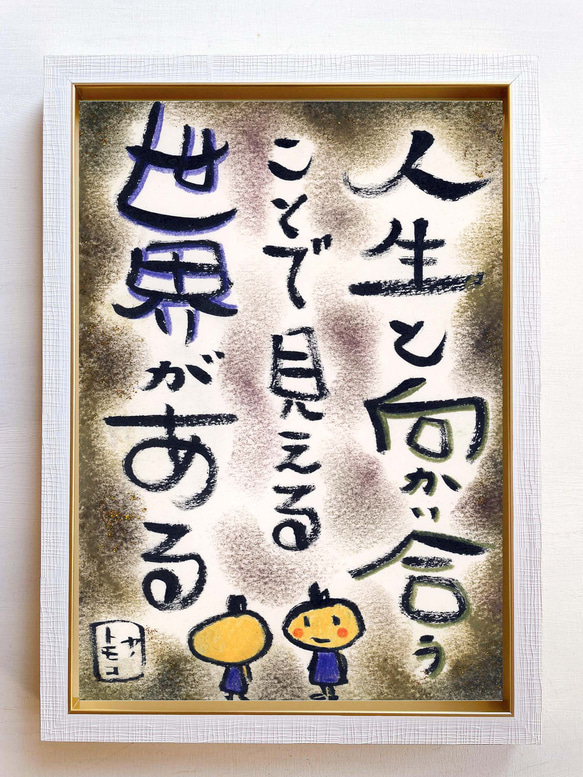 人生と向かい合う
ことで見える
世界がある
トモコ